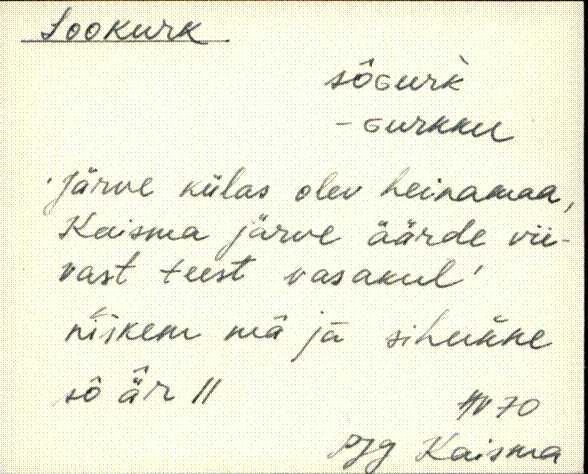 Sookurk
sôɢurk̀
- ɢurkku
'Järve külas olev heinamaa,
Kaisma järve äärde vii-
vast teest vasakul'
niskem mâ ja sihukke
sô âr //
HV 70
Pjg Kaisma